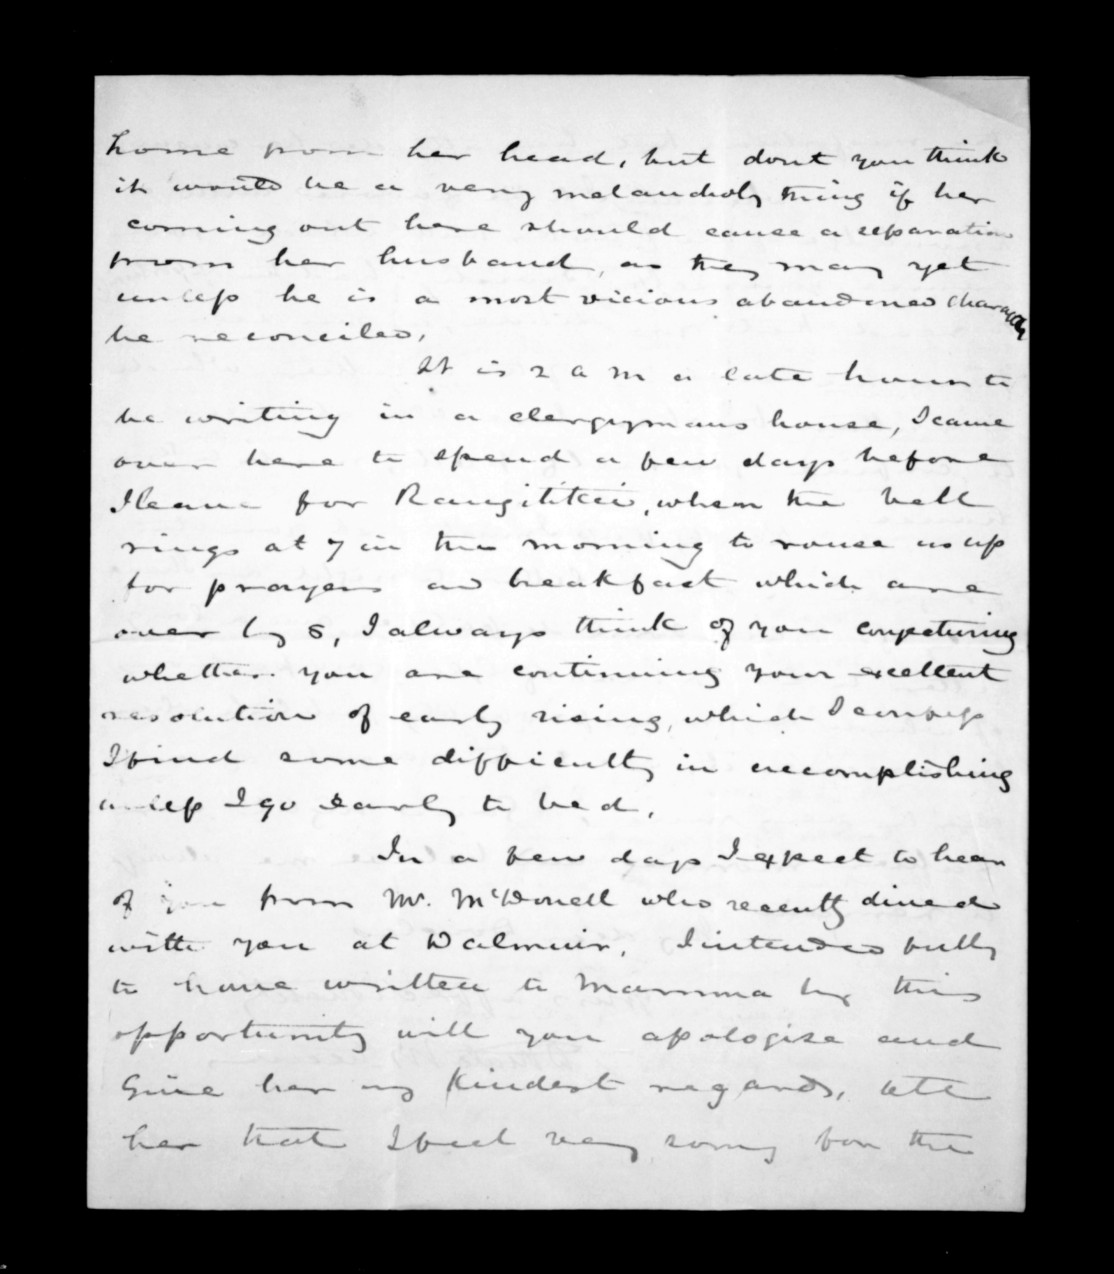 home from her head, but dont you think
it would be a very melancholy thing if her
coming out here should cause a separation
from her husband, as they may yet
unless he is a most vicious abandoned character
be reconciled,
It is 2 a m a late hour to
be writing in a clergymans house, I came
over here to spend a few days before
I leave for Rangitikei, when the bell
rings at 7 in the morning to rouse us up
for prayers and breakfast which are
over by 8, I always think of you conjecturing
whether you are continuing your excellent
resolution of early rising, which I confess
I find some difficulty in accomplishing
unless I go early to bed.
In a few days I expect to hear
of you from Mr. McDonell who recently dined
with you at Dalmuir, I intended fully
to have written to Mamma by this
opportunity will you apologise and
Give her my kindest regards, tell
her that I feel very sorry for the